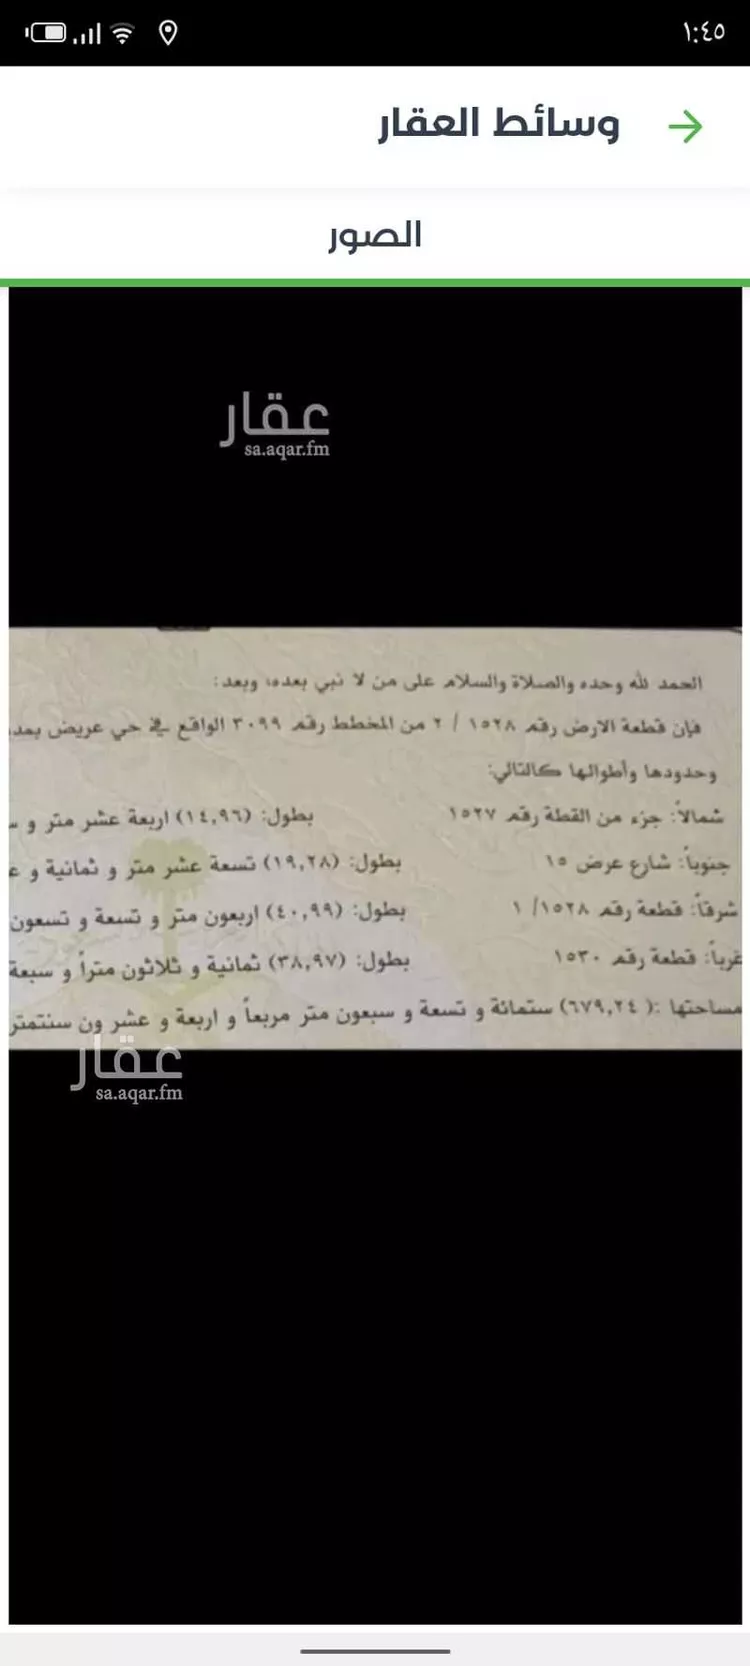 ١:٤٥
وسائط العقار
الصور
عقار
sa.aqar.fm
الحمد لله وحده والصلاة والسلام على من لا نبي بعده، وبعد:
فإن قطعة الارض رقم ١٥٢٨ / ٢ من المخطط رقم ٣٠٩٩ الواقع في حي عريض بمد
وحدودها وأطوالها كالتالي:
شمالاً: جزء من القطة رقم ١٥٢٧ بطول: (١٤,٩٦) اربعة عشر متر و س
جنوباً: شارع عرض ١٥ بطول: (١٩,٢٨) تسعة عشر متر و ثمانية و ع
شرقاً: قطعة رقم ١٥٢٨/ ١ بطول: (٤٠,٩٩) اربعون متر و تسعة و تسعون
غرباً: قطعة رقم ١٥٣٠ بطول: (٣٨,٩٧) ثمانية و ثلاثون متراً و سبعة
مساحتها :( ٦٧٩,٢٤) ستمائة و تسعة و سبعون متر مربعاً و اربعة و عشر ون سنتمتر
عقار
sa.aqar.fm